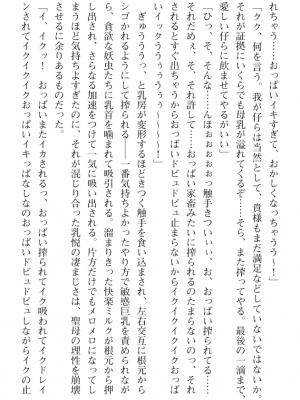 れちゃう……おっぱいイキすぎて、おかしくなっちゃうう――！」
「クク、何を言う。我が仔らは当然として、貴様もまだ満足などしていないではないか。
それが証拠にいくらでも母乳が溢れてくるぞ……そら、また搾ってやる。最後の一滴まで、
愛しい仔らに飲ませてやるがいい」
「ひっ、そ、そんな……んほぉぉぉぉっ触手きついぃぃ、お、おっぱい搾られてる……
それだめぇ、そ、それ許して……おっぱい家畜みたいに搾られるのたまらないのっ、それ
されるとすぐ出ちゃうからおっぱいドピュドピュ止まらないからイクイクイクおっぱ
いイックうううぅぅぅ～～～～！」
ぎゅううううっ、と乳房が変形するほどきつく触手を食い込まされ、左右交互に根元から
シゴかれるようにして搾られる――一番気持ちよかったやり方で敏感巨乳を責められながら
ら、貪欲な妖虫たちに乳首を噛まれて吸引される。溜まりきった快楽ミルクが根元から押
し出され、さらなる加速をつけて一気に吸い出される。片方だけでもメロメロになってし
まうほど気持ちよすぎたのに、それが混じり合った乳悦の凄まじさは、聖母の理性を崩壊
させるに余りあるものだった。
「イ、イクッ！　おっぱいまたイカされるっ、おっぱい搾られてイク吸われてイクドレイ
ンされてイクイクイクおっぱいイキっぱなしなのおっぱいドピュドピュしながらイクの止